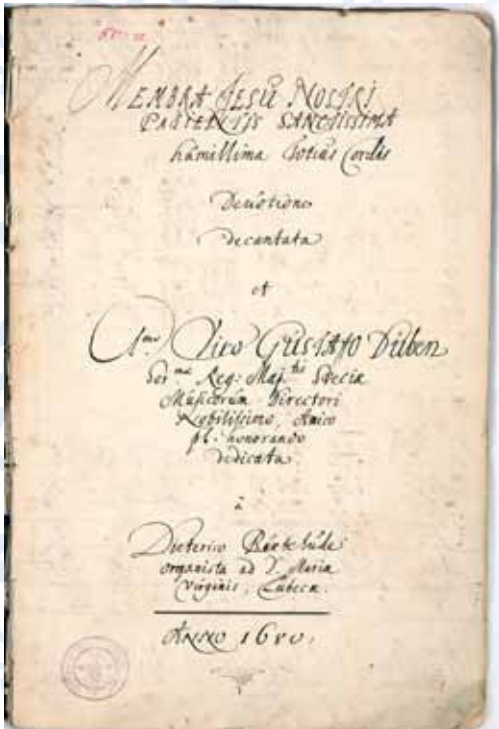 MEMBRA JESU NOSTRI
PATIENTIS SANCTISSIMA
humillima Totius Cordis
Devotione
decantata
et
Viro GUSTAVO Düben
Ser:mæ Reg: Maj:tis Sveciæ
Musicorum Directori
Nobilissimo, Amico
pl: honorando
dedicata
à
Dieterico Buxtehude
organista ad S. Mariæ
Virginis, Lübeca.
ANNO 1680.